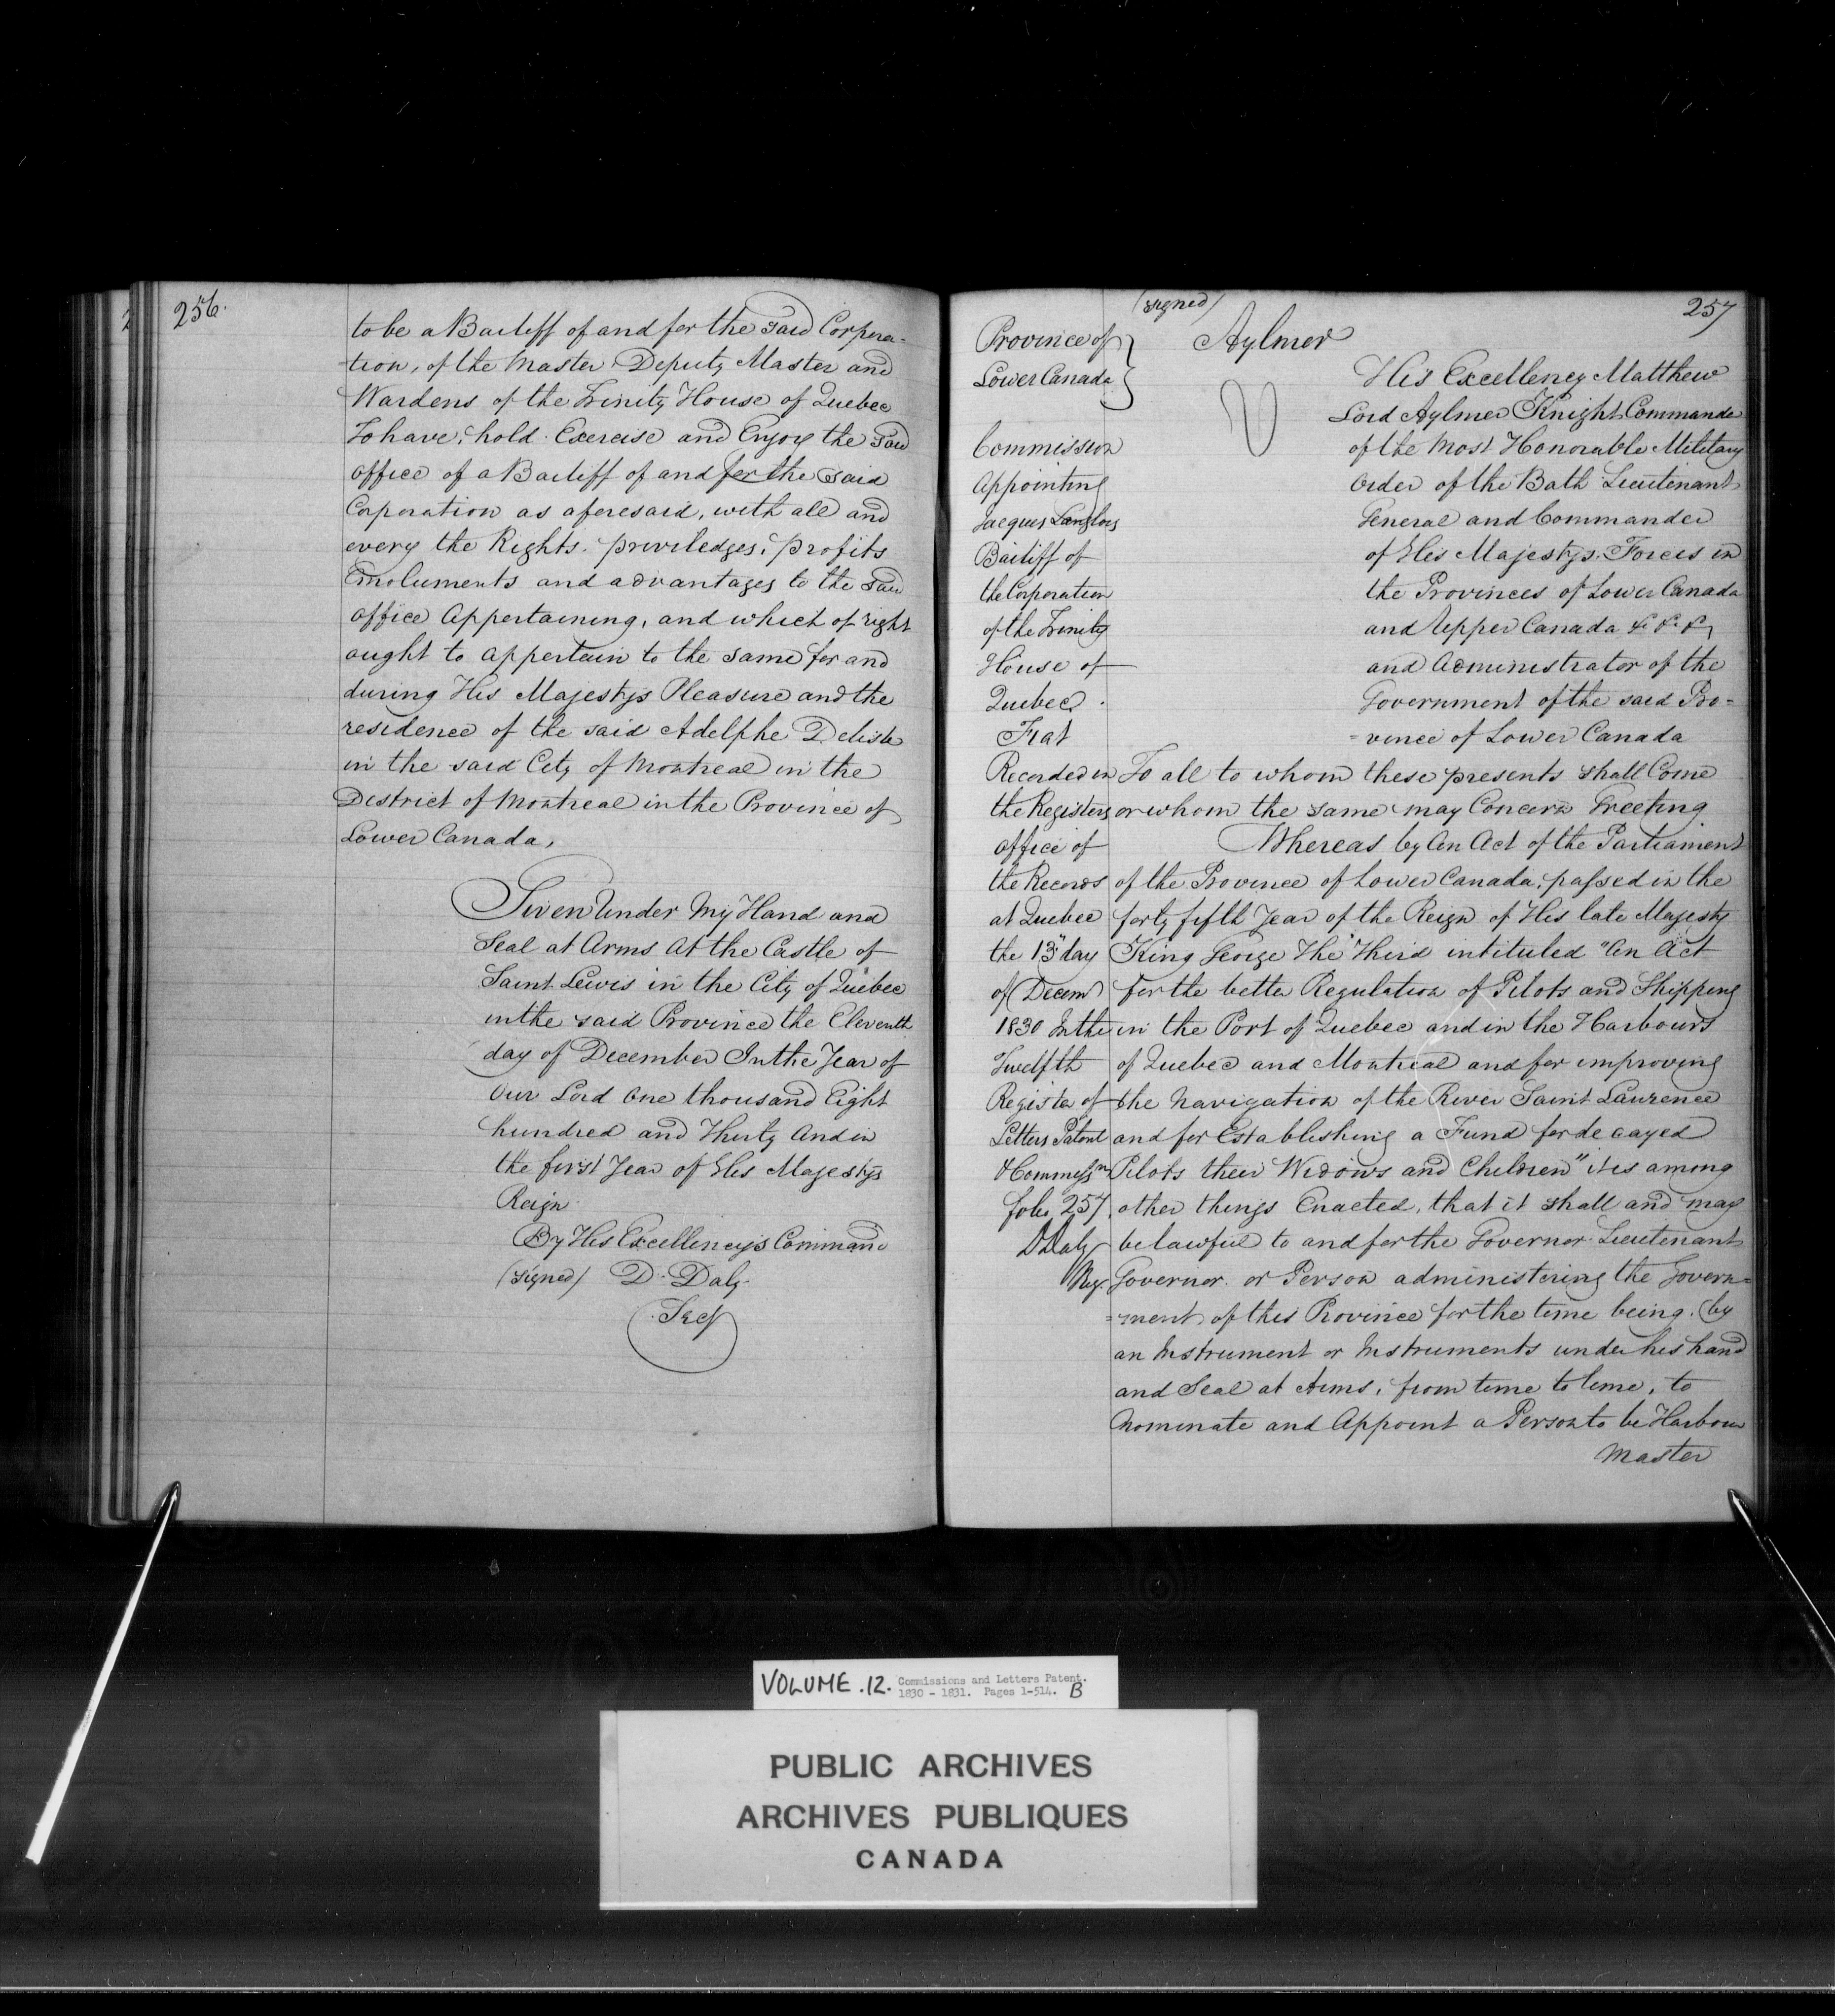 256.
to be a Bailiff of and for the said Corpora-
-tion, of the Master Deputy Master and
Wardens of the Trinity House of Quebec
To have, hold Exercise and Enjoy the said
office of a Bailiff of and for the said
Corporation as aforesaid, with all and
every the Rights. priviledges, profits
Emoluments and advantages to the said
office Appertaining, and which of right
ought to appertain to the same for and
during His Majesty's Pleasure and the
residence of the said Adelphe Delisle
in the said City of Montreal in the
District of Montreal in the Province of
Lower Canada,
Given Under My Hand and
Seal at Arms At the Castle of
Saint Lewis in the City of Quebec
in the said Province the Eleventh
day of December In the Year of
Our Lord One thousand Eight
hundred and Thirty And in
the first Year of His Majesty's
Reign
By His Excellency's Command
(signed) D. Daly
Secy
257
(signed)
Aylmer
Province of
Lower Canada
Commission
Appointing
Jacques Langlois
Bailiff of
the Corporation
of the Trinity
House of
Quebec.
Fiat
Recorded in
the Registers
office of
the Records
at Quebec
the 13th day
of Decemr
1830 In the
Twelfth
Register of
Letters Patent
& Commissns
folio 257.
DDaly
Reg.
His Excellency Matthew
Lord Aylmer Knight Commander
of the Most Honorable Military
Order of the Bath Lieutenant
General and Commander
of His Majesty's Forces in
the Provinces of Lower Canada
and Upper Canada &c &c &c
and Administrator of the
Government of the said Pro-
-vince of Lower Canada
To all to whom these presents shall Come
or whom the same may Concern Greeting
Whereas by An Act of the Parliament
of the Province of Lower Canada, passed in the
forty fifth Year of the Reign of His late Majesty
King George The Third intituled "An Act
For the better Regulation of Pilots and Shipping
in the Port of Quebec and in the Harbours
of Quebec and Montreal and for improving
the Navigation of the River Saint Laurence
and for Establishing a Fund for decayed
Pilots their Widows and Children" it is among
other things Enacted, that it shall and may
be lawful to and for the Governor Lieutenant
Governor or Person administering the Govern-
-ment of this Province for the time being, by
an Instrument or Instruments under his hand
and Seal at Arms, from time to time, to
Nominate and Appoint a Person to be Harbour
Master
VOLUME .12. Commissions and Letters Patent.
1830 - 1831. Pages 1-514. B
PUBLIC ARCHIVES
ARCHIVES PUBLIQUES
CANADA